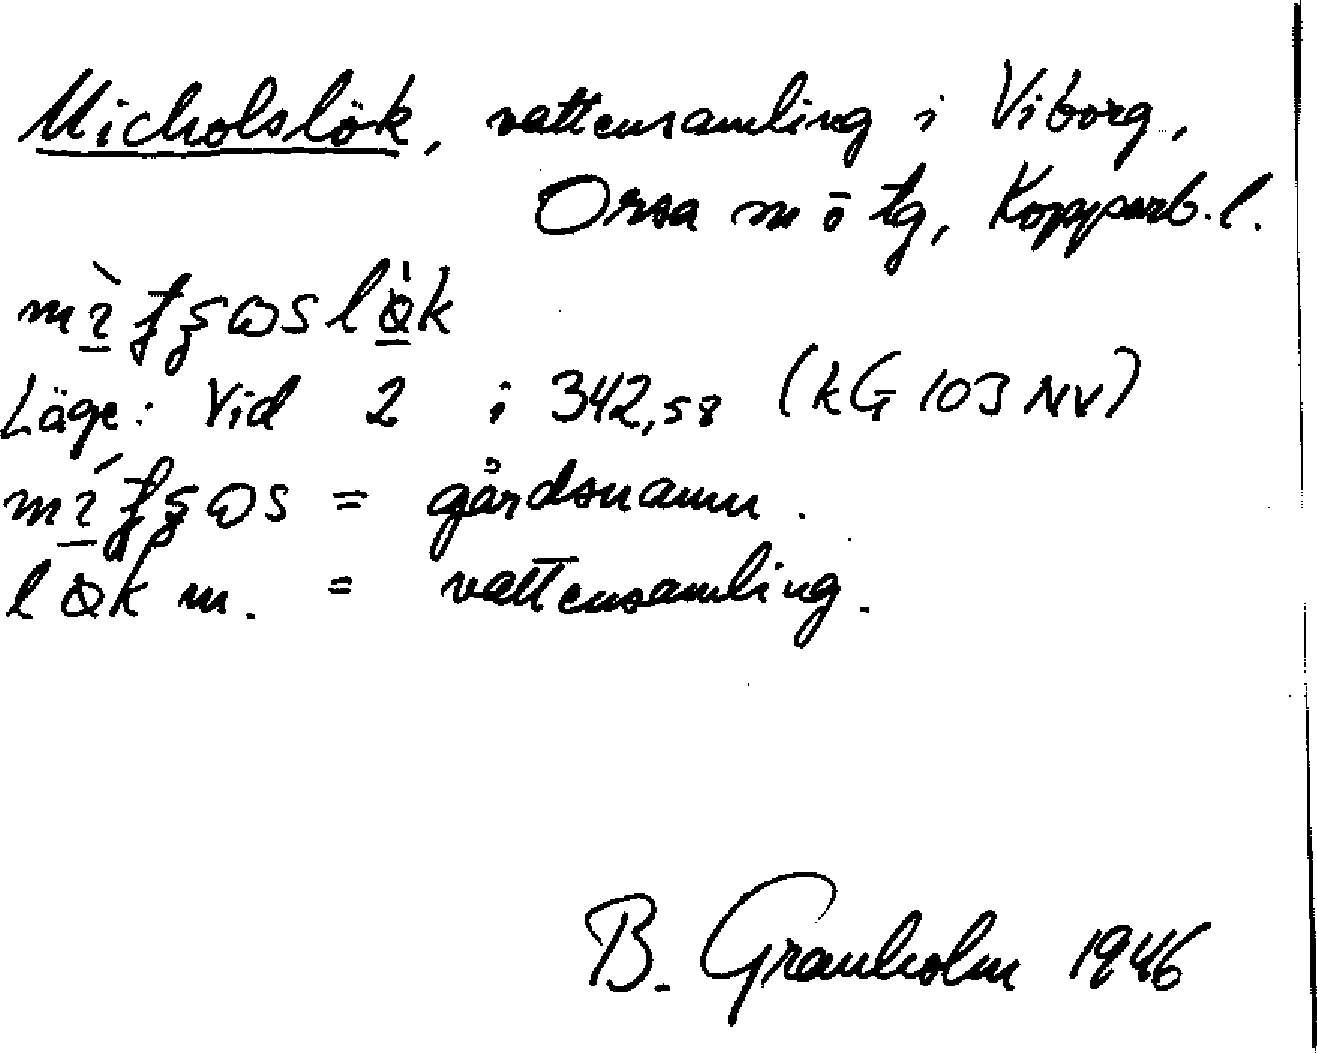 Micholslök, vattensamling i Viborg,
Orsa sn o tg, Kopparb. l.
Läge: Vid 2 i 342,58 (kG 103 NV)
= gårdsnamn.
m. = vattensamling.
B. Granholm 1946